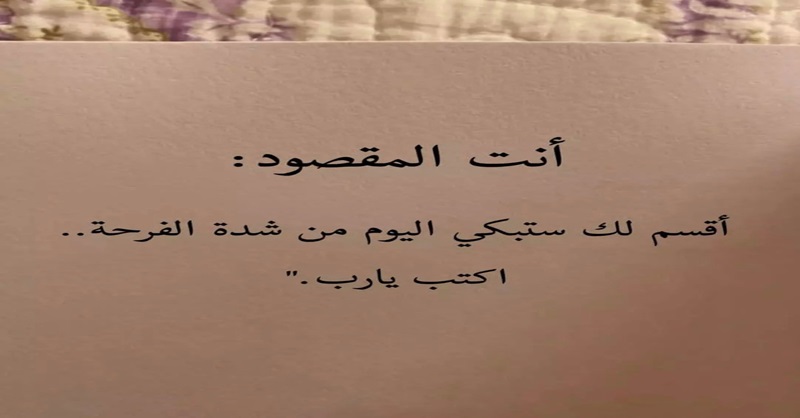 أنت المقصود:
أقسم لك ستبكي اليوم من شدة الفرحة..
اكتب يارب."